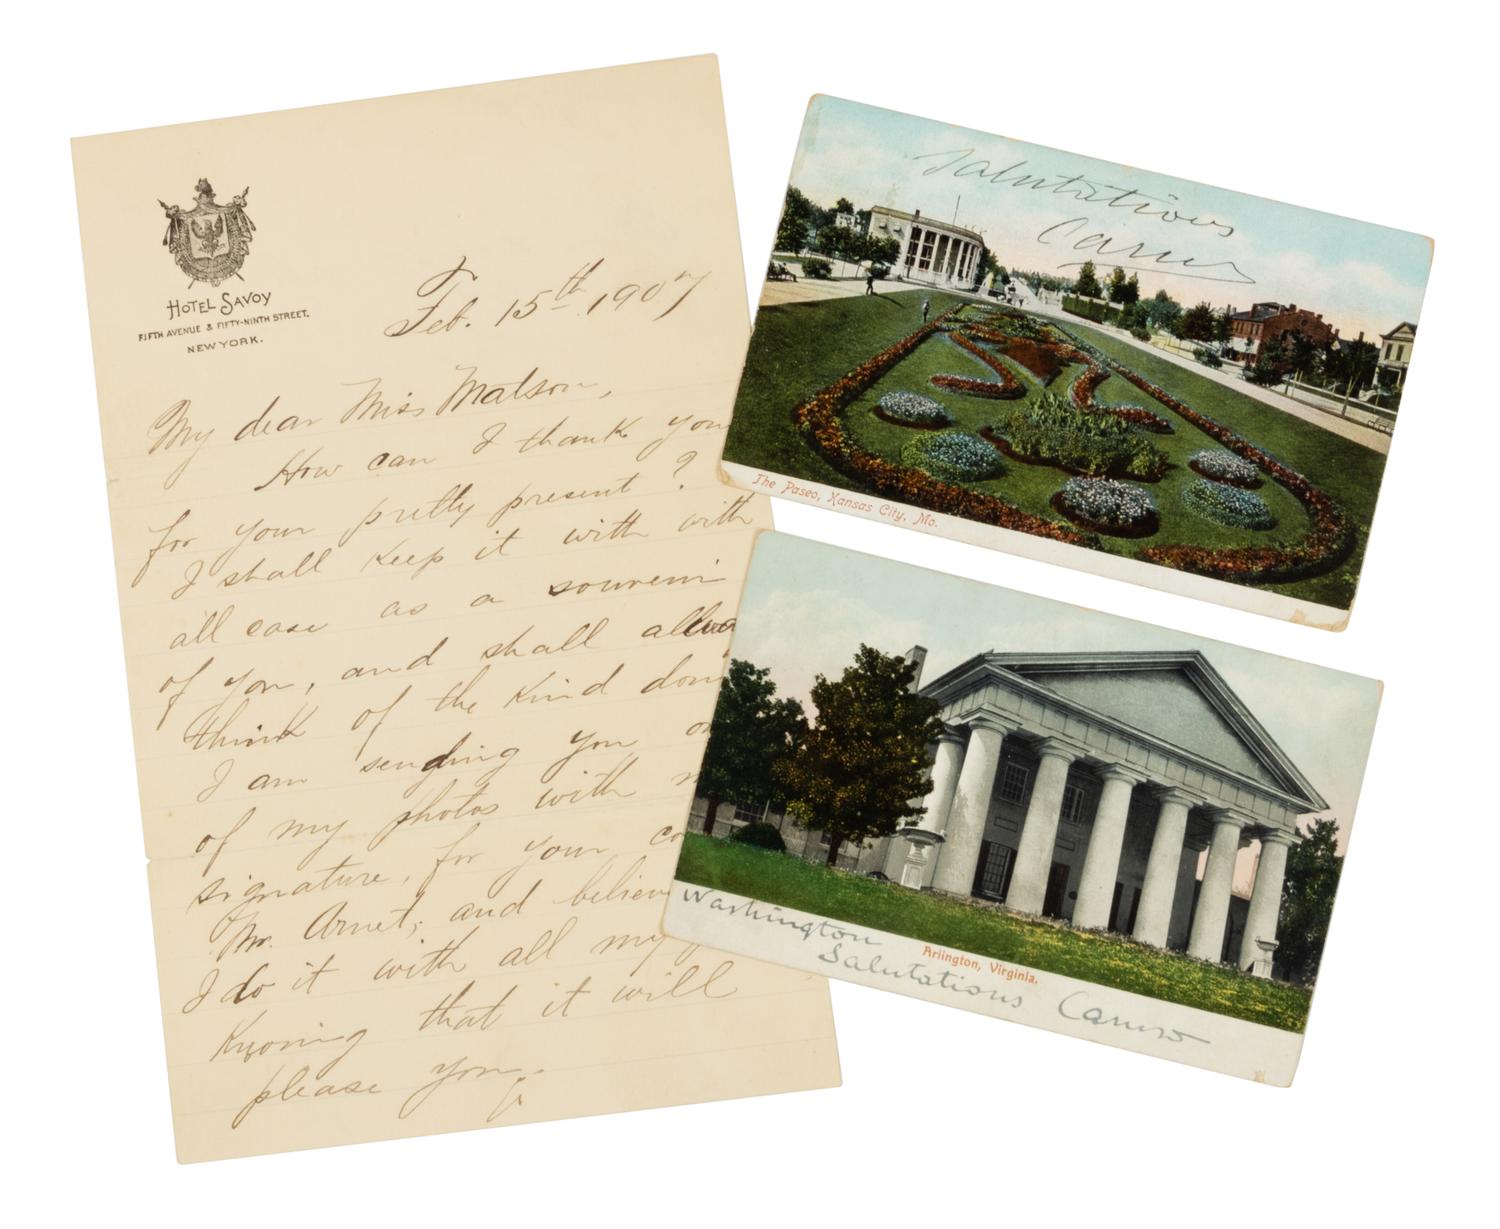 HOTEL SAVOY
FIFTH AVENUE & FIFTY-NINTH STREET.
NEW YORK.
Feb. 15th 1907
My dear Miss Matson,
How can I thank you
for your pretty present?
I shall keep it with with
all case as a souveni
of you, and shall allwa
think of the kind don
I am sending you
of my photos with
signature, for your
Mr. Arnet; and believe
I do it with all my
Knoning that it will
please you.
Salutations
Caruso
The Paseo, Kansas City, Mo.
Washington
Arlington, Virginia.
Salutations Caruso